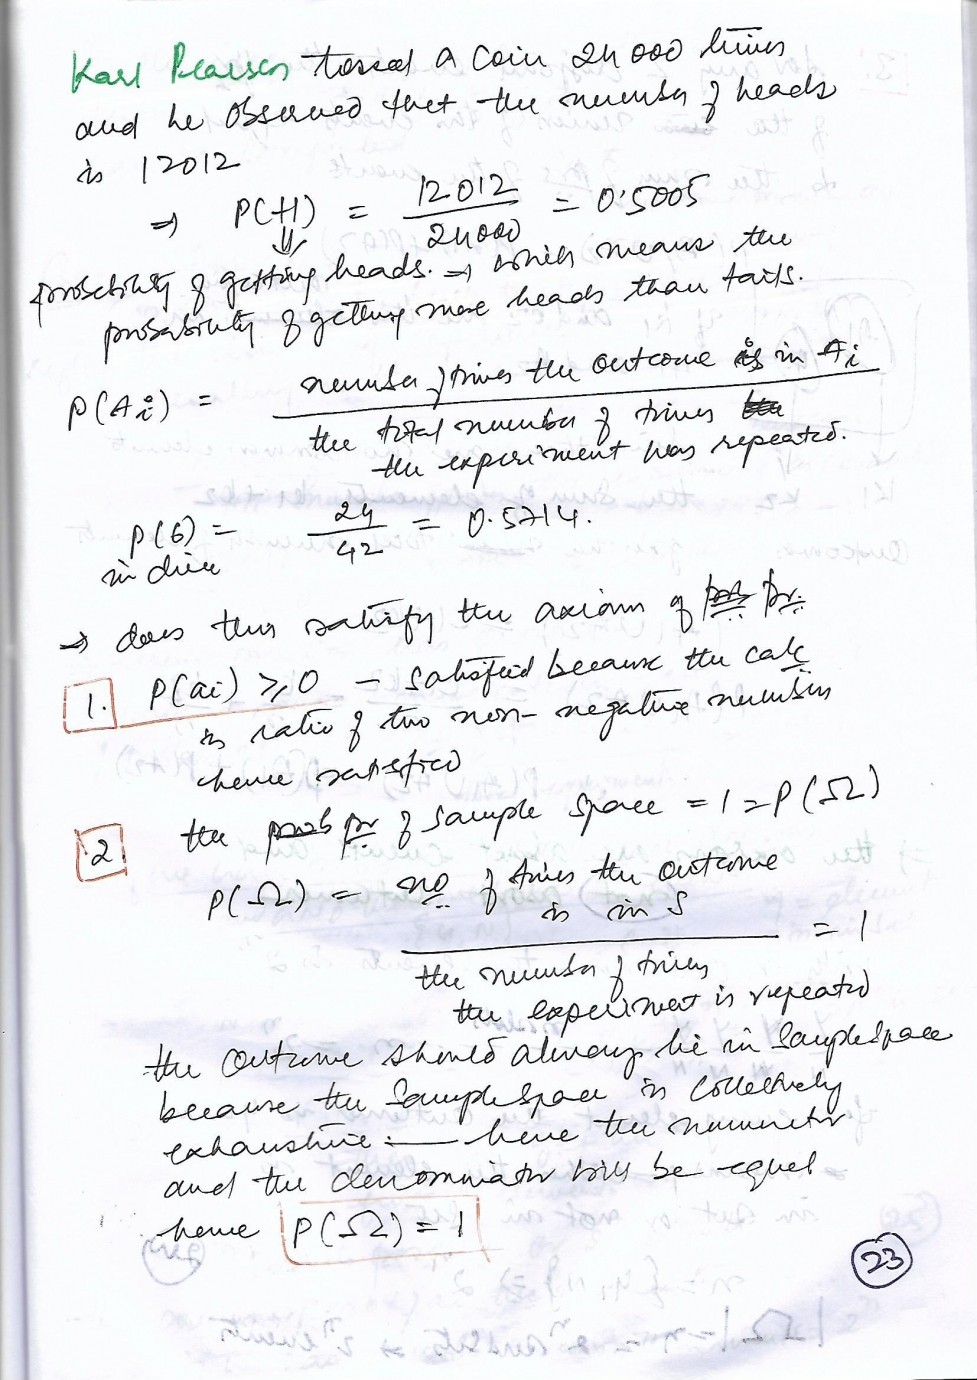 Karl Pearson tossed a coin 24000 times
and he observed that the number of heads
is 12012
⇒ P(H) = 12012 / 24000 = 0.5005
⇓
probability of getting heads. → which means the
probability of getting more heads than tails.
P(Ai) = number of times the outcome is in Ai
the total number of times
the experiment has repeated.
P(6) = 24 / 42 = 0.5714.
in dice
⇒ does this satisfy the axioms of pr.
1. P(ai) ≥ 0 - satisfied because the calc
is ratio of two non-negative numbers
hence satisfied
2. the pr of sample space = 1 = P(Ω)
P(Ω) = no of times the outcome
is in S
= 1
the number of times
the experiment is repeated
the outcome should always lie in Sample Space
because the Sample Space is collectively
exhaustive :— hence the numerator
and the denominator will be equal
hence P(Ω) = 1
23